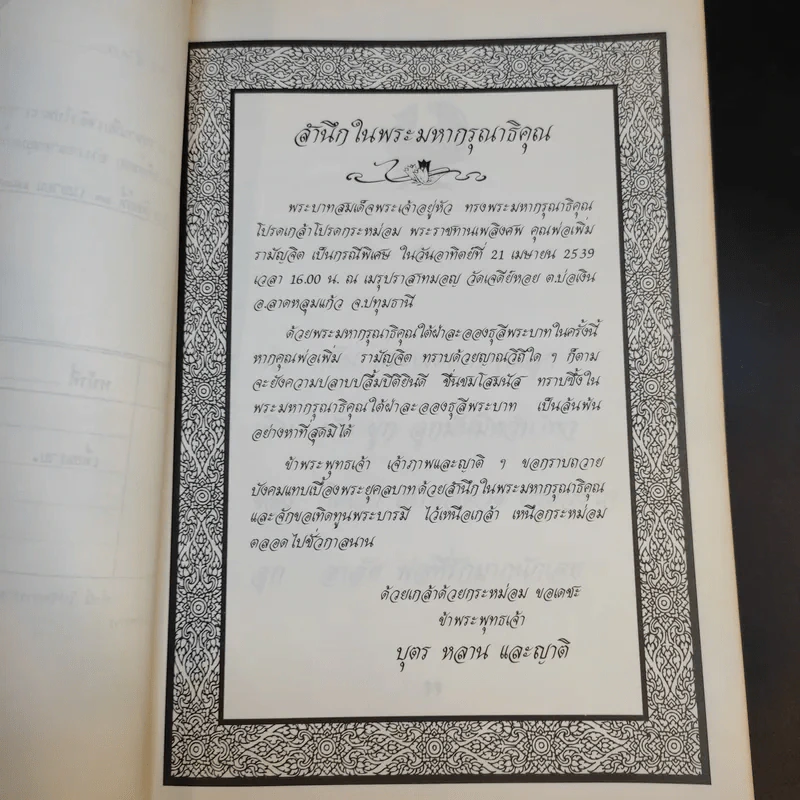 สำนึกในพระมหากรุณาธิคุณ
พระบาทสมเด็จพระเจ้าอยู่หัว ทรงพระมหากรุณาธิคุณ
โปรดเกล้าโปรดกระหม่อม พระราชทานเพลิงศพ คุณพ่อเพิ่ม
รามัญจิต เป็นกรณีพิเศษ ในวันอาทิตย์ที่ 21 เมษายน 2539
เวลา 16.00 น. ณ เมรุปราสาทมอญ วัดเจดีย์หอย ต.บ่อเงิน
อ.ลาดหลุมแก้ว จ.ปทุมธานี
ด้วยพระมหากรุณาธิคุณใต้ฝ่าละอองธุลีพระบาทในครั้งนี้
หากคุณพ่อเพิ่ม รามัญจิต ทราบด้วยญาณวิถีใด ๆ ก็ตาม
จะยังความปลาบปลื้มปิติยินดี ชื่นชมโสมนัส ทราบซึ้งใน
พระมหากรุณาธิคุณใต้ฝ่าละอองธุลีพระบาท เป็นล้นพ้น
อย่างหาที่สุดมิได้
ข้าพระพุทธเจ้า เจ้าภาพและญาติ ๆ ขอกราบถวาย
บังคมแทบเบื้องพระยุคลบาทด้วยสำนึกในพระมหากรุณาธิคุณ
และจักขอเทิดทูนพระบารมี ไว้เหนือเกล้า เหนือกระหม่อม
ตลอดไปชั่วกาลนาน
ด้วยเกล้าด้วยกระหม่อม ขอเดชะ
ข้าพระพุทธเจ้า
บุตร หลาน และญาติ